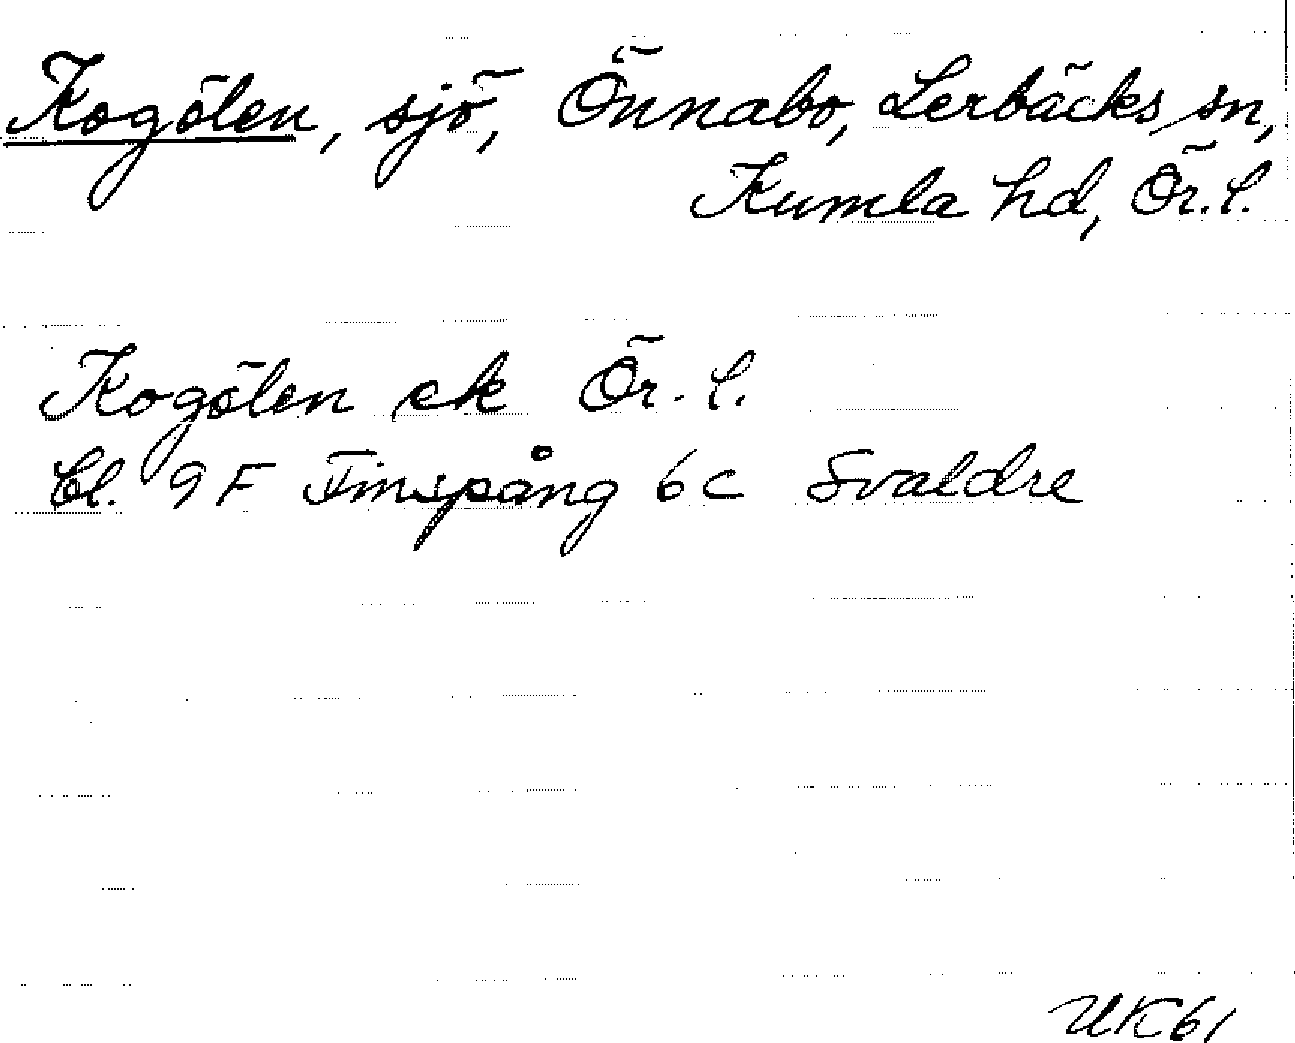 Kogölen, sjö, Önnabo, Lerbäcks sn,
Kumla hd, Ör. l.
Kogölen ek Ör. l.
Bl. 9 F Finspång 6 c Svaldre
UK 61